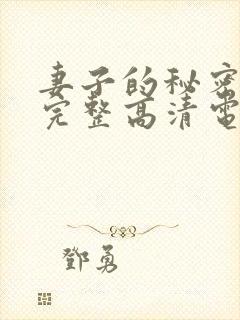 妻子的秘密
完整高清電
鄧勇